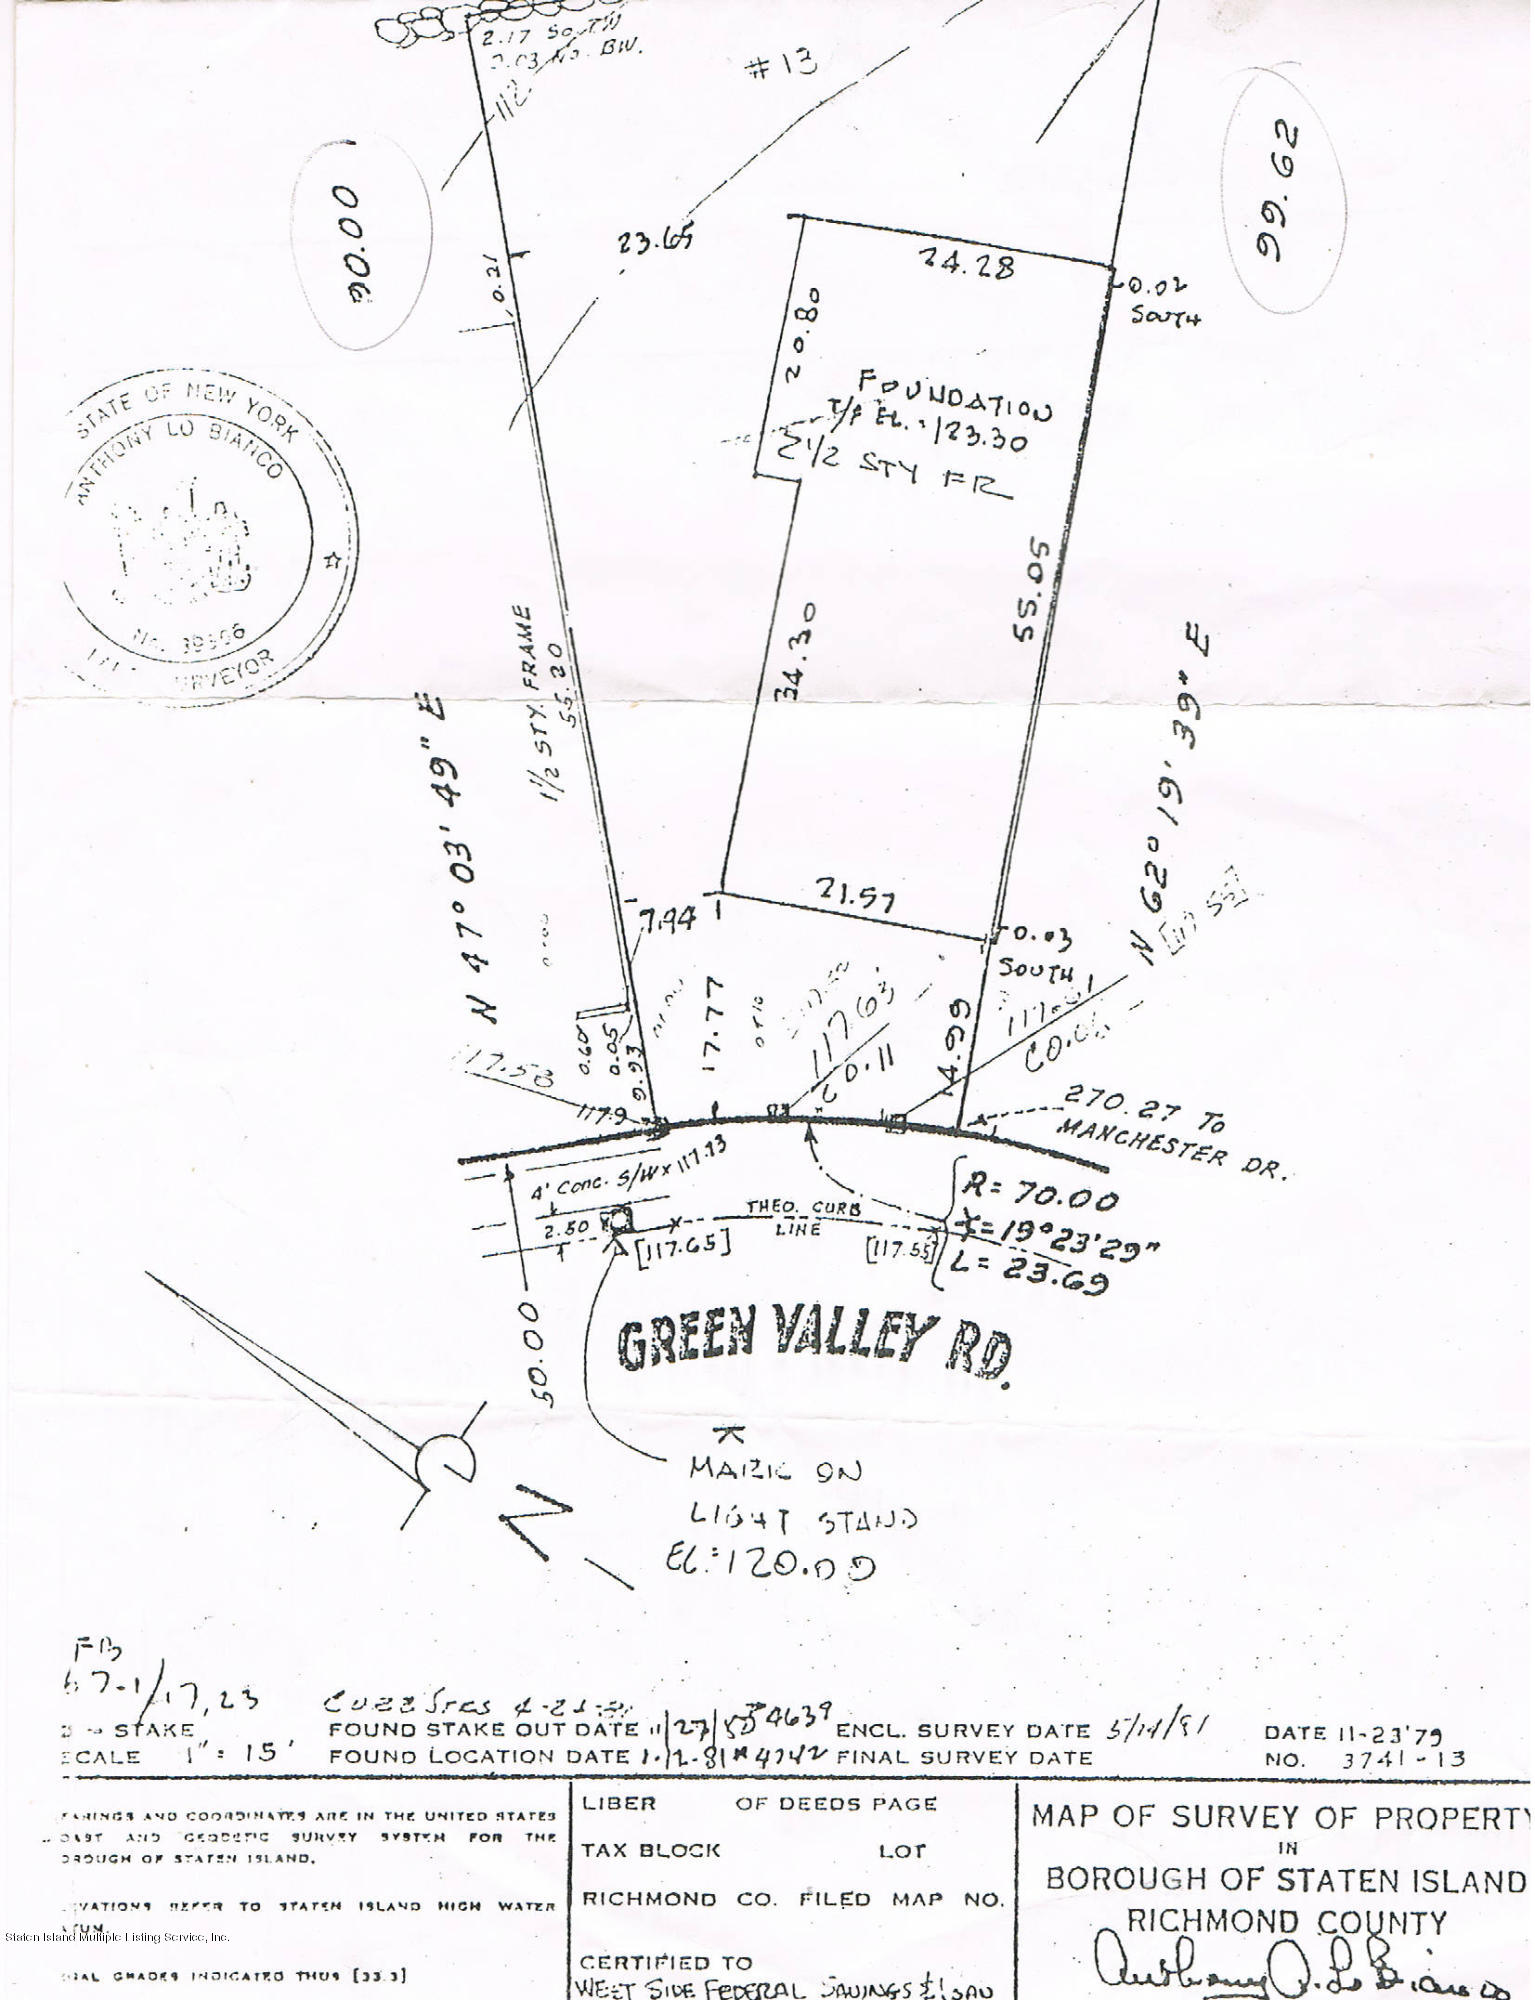 2.17 SOUTH
0.03 NO. BW.
#13
112
90.00
99.62
23.65
24.28
0.21
0.02
SOUTH
20.80
FOUNDATION
T/F EL. = 123.30
2 1/2 STY FR
STATE OF NEW YORK
ANTHONY LO BIANCO
SURVEYOR
1 1/2 STY. FRAME
55.20
34.30
55.05
N 47° 03' 49" E
N 62° 19' 39" E
7.94
21.57
0.03
SOUTH
0.60
0.05
9.93
17.77
117.63
C 0.11
14.99
117.9
270.27 TO
MANCHESTER DR.
4' CONC. S/W x 117.73
2.50
THEO. CURB
LINE
[117.65]
[117.55]
R = 70.00
= 19° 23' 29"
L = 23.69
50.00
GREEN VALLEY RD.
MARK ON
LIGHT STAND
EL = 120.00
N
FB
67-1/17,23
STAKE
FOUND STAKE OUT DATE 11/27/80 #4639 ENCL. SURVEY DATE 5/14/81 DATE 11-23'79
SCALE 1" = 15' FOUND LOCATION DATE 1-12-81 #4742 FINAL SURVEY DATE NO. 3741-13
EARINGS AND COORDINATES ARE IN THE UNITED STATES
OAST AND GEODETIC SURVEY SYSTEM FOR THE
OROUGH OF STATEN ISLAND.
EVATIONS REFER TO STATEN ISLAND HIGH WATER
ATUM.
GRADES INDICATED THUS [33.3]
LIBER OF DEEDS PAGE
TAX BLOCK LOT
RICHMOND CO. FILED MAP NO.
CERTIFIED TO
WEST SIDE FEDERAL SAVINGS & LOAN
MAP OF SURVEY OF PROPERTY
IN
BOROUGH OF STATEN ISLAND
RICHMOND COUNTY
Anthony A. Lo Bianco
Staten Island Multiple Listing Service, Inc.